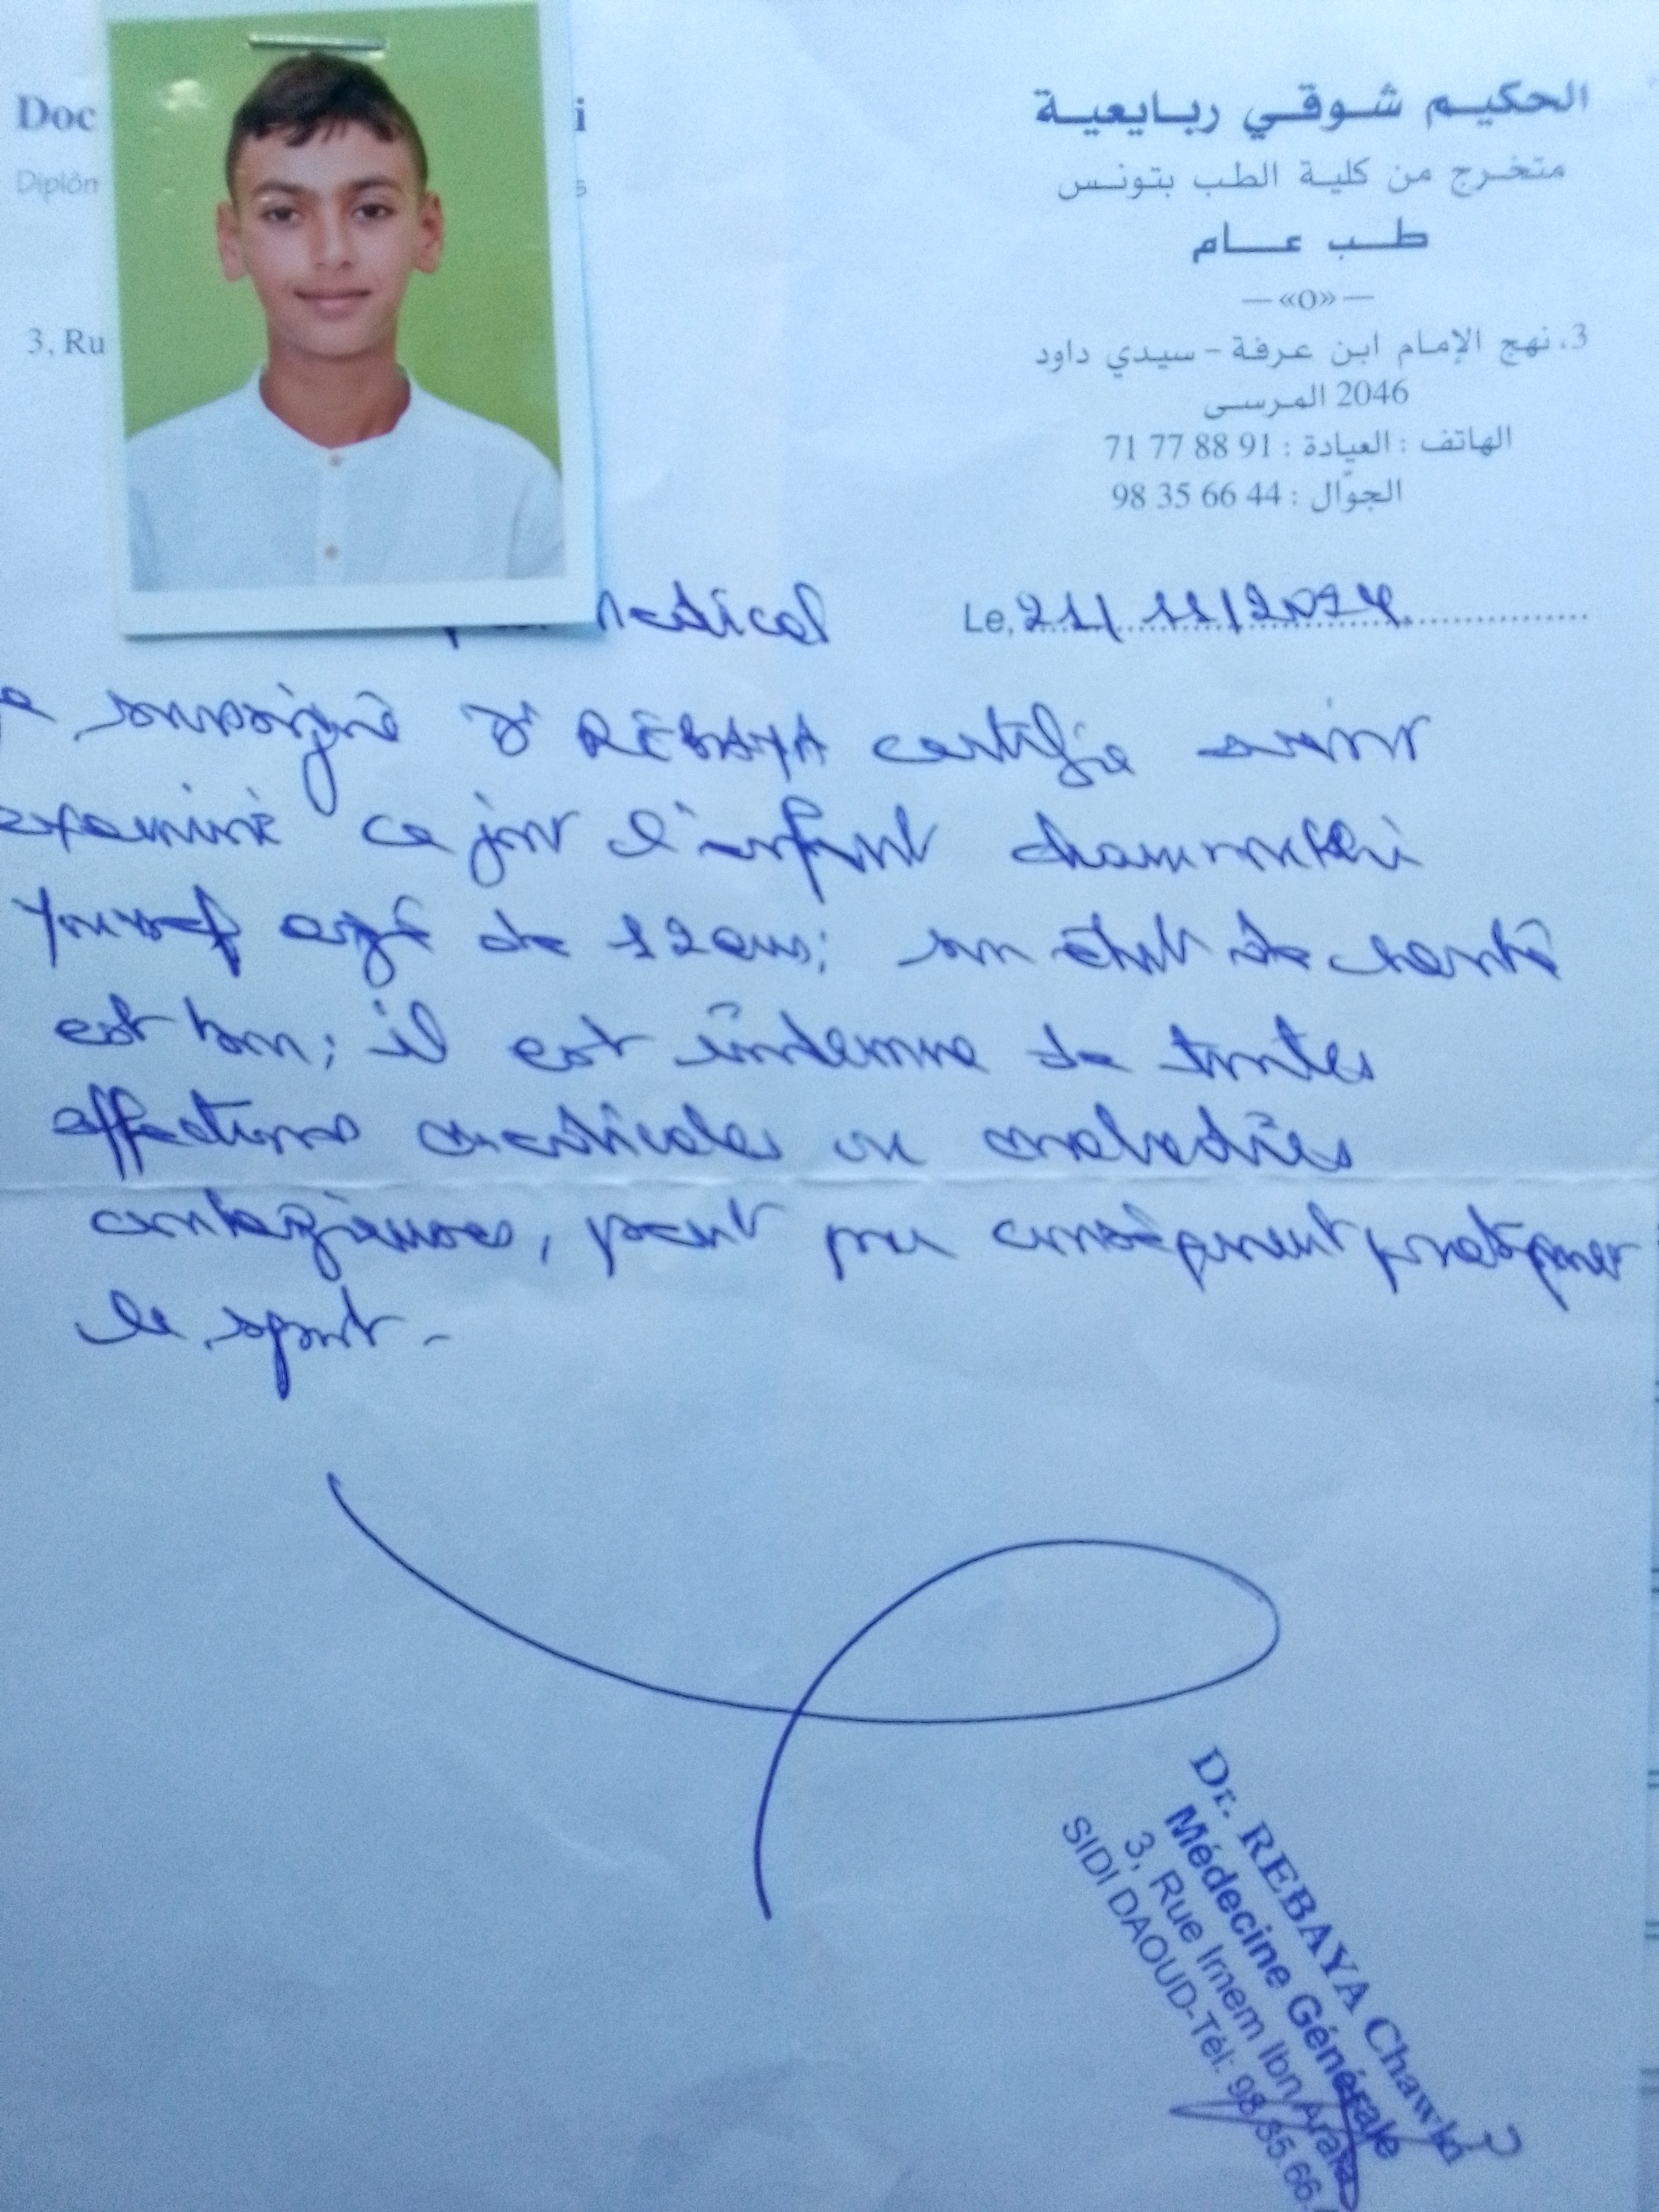 Doc
i
Diplôm
s
3, Ru
الحكيم شوقي ربايعية
متخرج من كلية الطب بتونس
طب عام
—«O»—
3، نهج الإمام ابن عرفة - سيدي داود
2046 المرسى
الهاتف : العيادة : 71 77 88 91
الجوّال : 98 35 66 44
medical
Le, 21/11/2024
soussigné Dr REBAYA certifie avoir
examiné ce jour l'enfant
Youssef agé de 12 ans; son état de santé
est bon; il est indemne de toutes
affections médicales ou maladies
contagieuses, peut par conséquent pratiquer
le sport -
Dr. REBAYA Chawki
Médecine Générale
3, Rue Imem Ibn Arafa
SIDI DAOUD-Tél: 98.35.66.